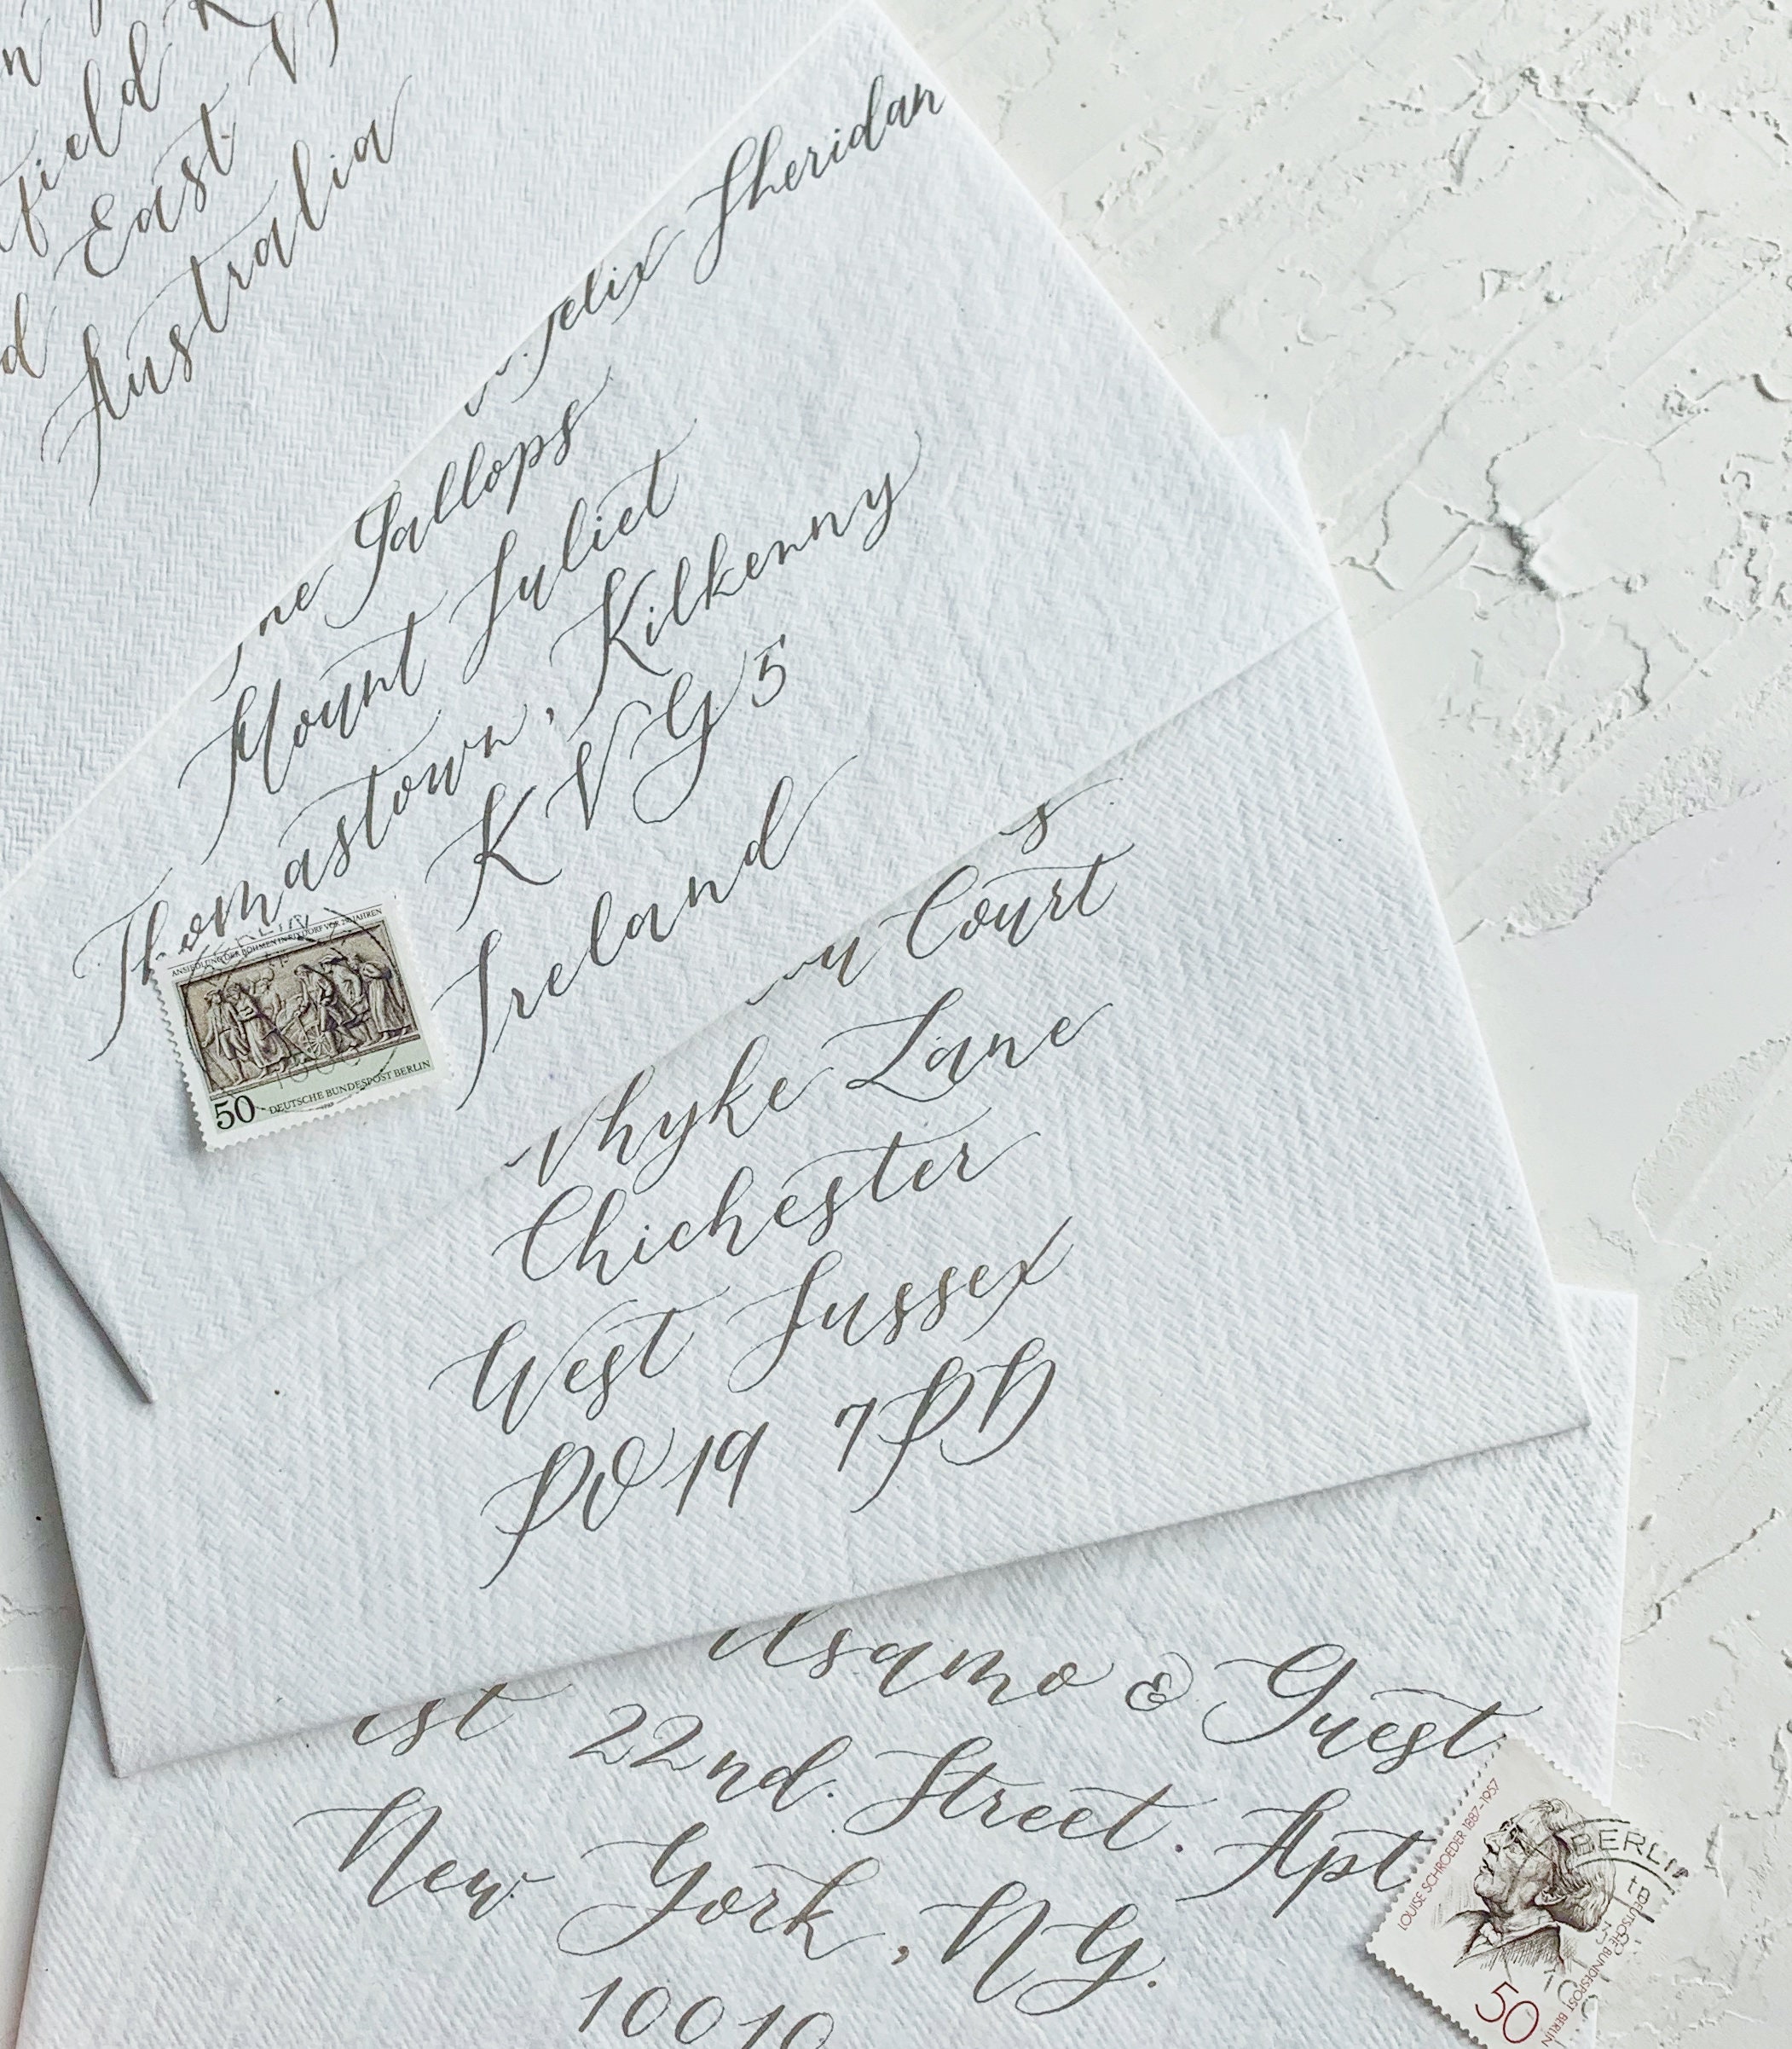 East
Australia
Felix Sheridan
Gallops
Mount Juliet
Thomastown, Kilkenny
K V G 5
Ireland
ANSIEDLUNG DER BÖHMEN IN RIXDORF VOR 250 JAHREN
BERLIN
50 DEUTSCHE BUNDESPOST BERLIN
Court
Whyke Lane
Chichester
West Sussex
PO19 7PD
& Guest
22nd. Street. Apt
New York, NY.
10010
LOUISE SCHROEDER 1887-1957
BERLIN
DEUTSCHE BUNDESPOST BERLIN
50